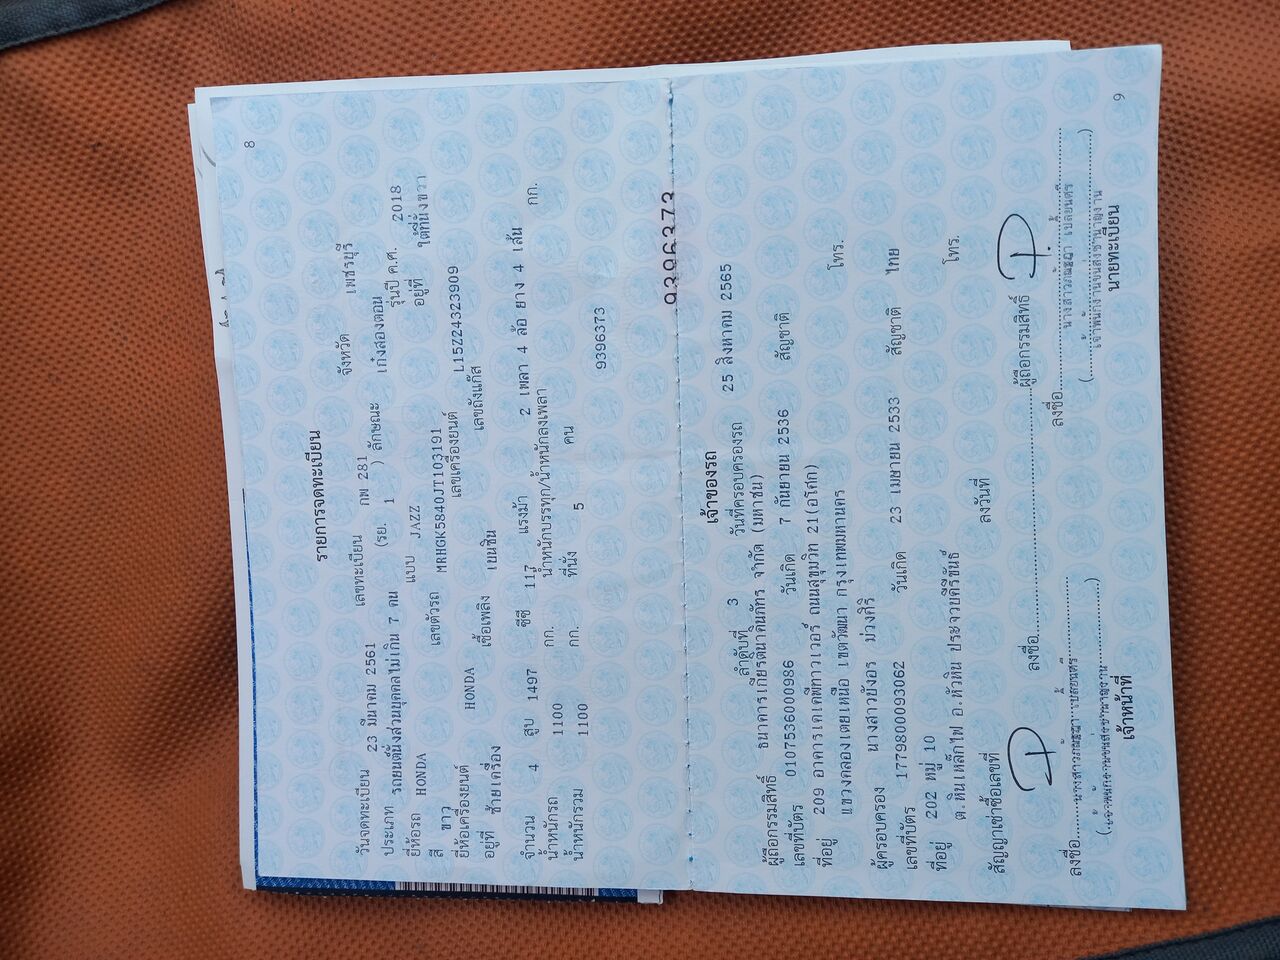 8
รายการจดทะเบียน
วันจดทะเบียน 23 มีนาคม 2561 เลขทะเบียน กพ 281 จังหวัด เพชรบุรี
ประเภท รถยนต์นั่งส่วนบุคคลไม่เกิน 7 คน (รย. 1 ) ลักษณะ เก๋งสองตอน
ยี่ห้อรถ HONDA แบบ JAZZ รุ่นปี ค.ศ. 2018
สี ขาว เลขตัวรถ MRHGK5840JT103191 อยู่ที่ ใต้ที่นั่งขวา
ยี่ห้อเครื่องยนต์ HONDA เลขเครื่องยนต์ L15Z24323909
อยู่ที่ ซ้ายเครื่อง เชื้อเพลิง เบนซิน เลขถังแก๊ส
จำนวน 4 สูบ 1497 ซีซี 117 แรงม้า 2 เพลา 4 ล้อ ยาง 4 เส้น
น้ำหนักรถ 1100 กก. น้ำหนักบรรทุก/น้ำหนักลงเพลา กก.
น้ำหนักรวม 1100 กก. ที่นั่ง 5 คน
9396373
9396373
เจ้าของรถ
ลำดับที่ 3 วันที่ครอบครองรถ 25 สิงหาคม 2565
ผู้ถือกรรมสิทธิ์ ธนาคารเกียรตินาคินภัทร จำกัด (มหาชน)
เลขที่บัตร 0107536000986 วันเกิด 7 กันยายน 2536 สัญชาติ
ที่อยู่ 209 อาคารเคเคพีทาวเวอร์ ถนนสุขุมวิท 21(อโศก)
แขวงคลองเตยเหนือ เขตวัฒนา กรุงเทพมหานคร โทร.
ผู้ครอบครอง นางสาวบังอร ม่วงศิริ
เลขที่บัตร 1779800093062 วันเกิด 23 เมษายน 2533 สัญชาติ ไทย
ที่อยู่ 202 หมู่ 10
ต.หินเหล็กไฟ อ.หัวหิน ประจวบคีรีขันธ์ โทร.
สัญญาเช่าซื้อเลขที่ ลงวันที่
ลงชื่อ ผู้ถือกรรมสิทธิ์
ลงชื่อ นางสาว ลงชื่อ นางสาว
(เจ้าพนักงานขนส่งชำนาญงาน) (เจ้าพนักงานขนส่งชำนาญงาน)
เจ้าหน้าที่ นายทะเบียน
9